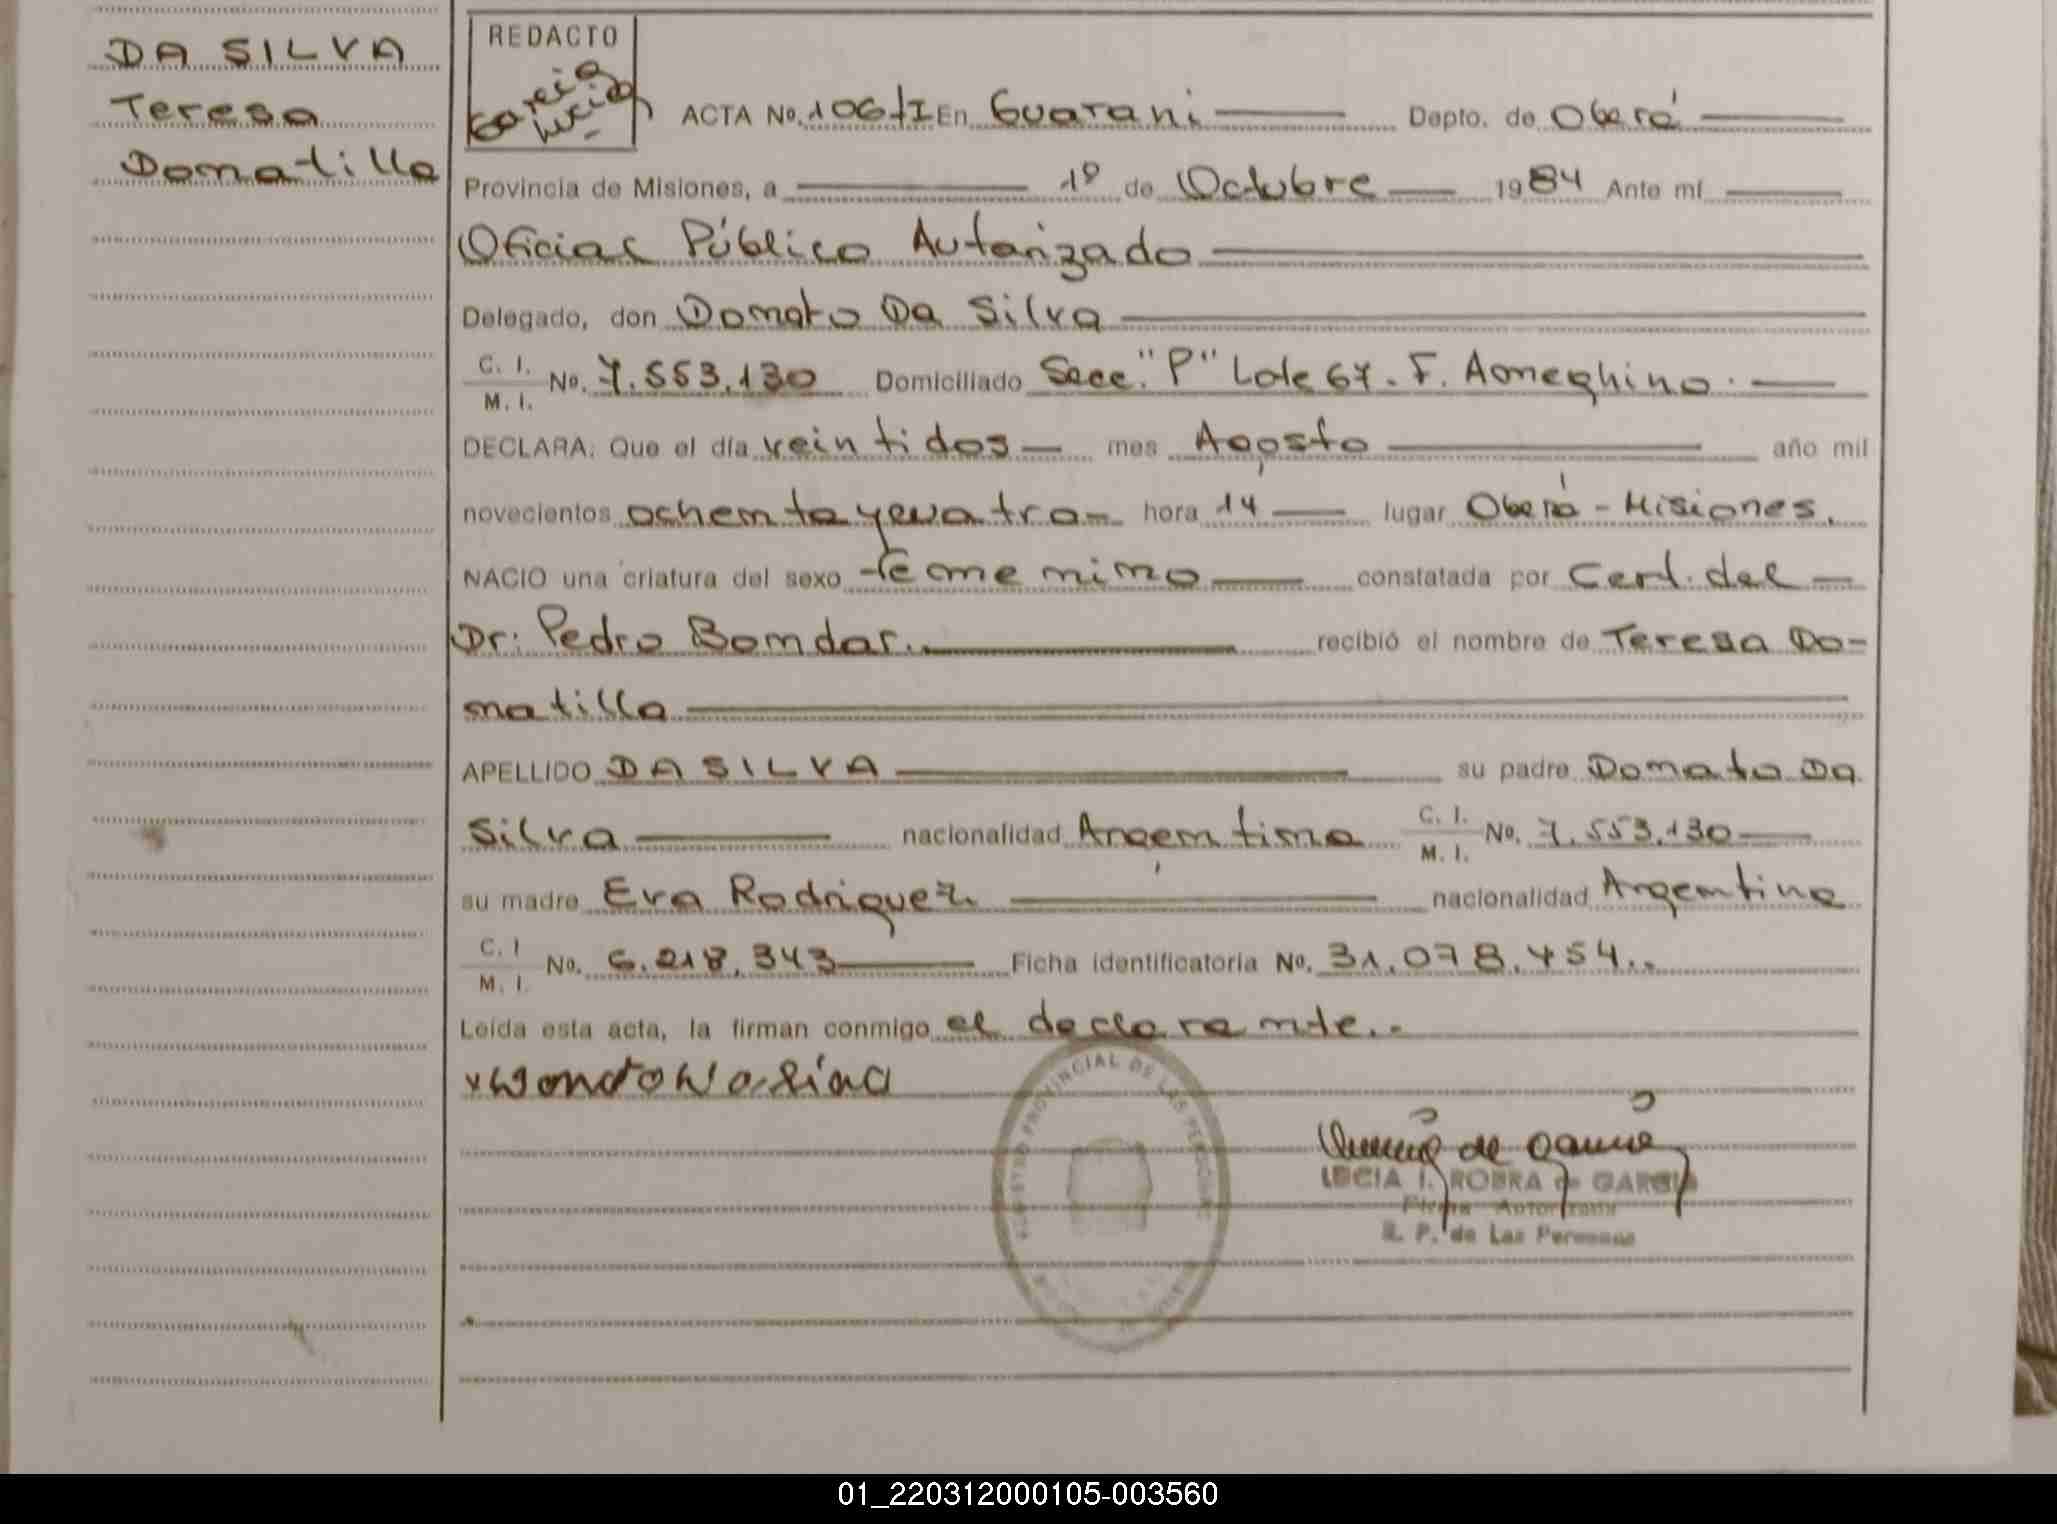 DA SILVA
Teresa
Domatilla
REDACTO
Garcia
Lucia
ACTA No. 106/I En Guarani Depto. de Oberá
Provincia de Misiones, a 1º de Octubre 1984 Ante mí
Oficial Público Autorizado
Delegado, don Donato Da Silva
C. I. M. I. No. 7.553.130 Domiciliado Secc. "P" Lote 67. F. Ameghino.
DECLARA: Que el día veintidos mes Agosto año mil
novecientos ochenta y cuatro hora 14 lugar Oberá - Misiones.
NACIO una criatura del sexo femenino constatada por Cert. del
Dr: Pedro Bondar. recibió el nombre de Teresa Do-
matilla
APELLIDO DA SILVA su padre Donato Da
Silva nacionalidad Argentina C. I. M. I. No. 7.553.130
su madre Eva Rodriguez. nacionalidad Argentina
C. I M. I. No. 6.218.343 Ficha identificatoria No. 31.078.454..
Leída esta acta, la firman conmigo el declarante..
REGISTRO PROVINCIAL DE LAS PERSONAS
LUCIA I. ROBRA de GARCIA
Firma Autorizada
R. P. de Las Personas
01_220312000105-003560